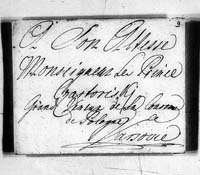 A Son Altesse
Monseigneur Le Prince
Czartoriski
Grand de la Couronne
de Pologne
à
Varsovie